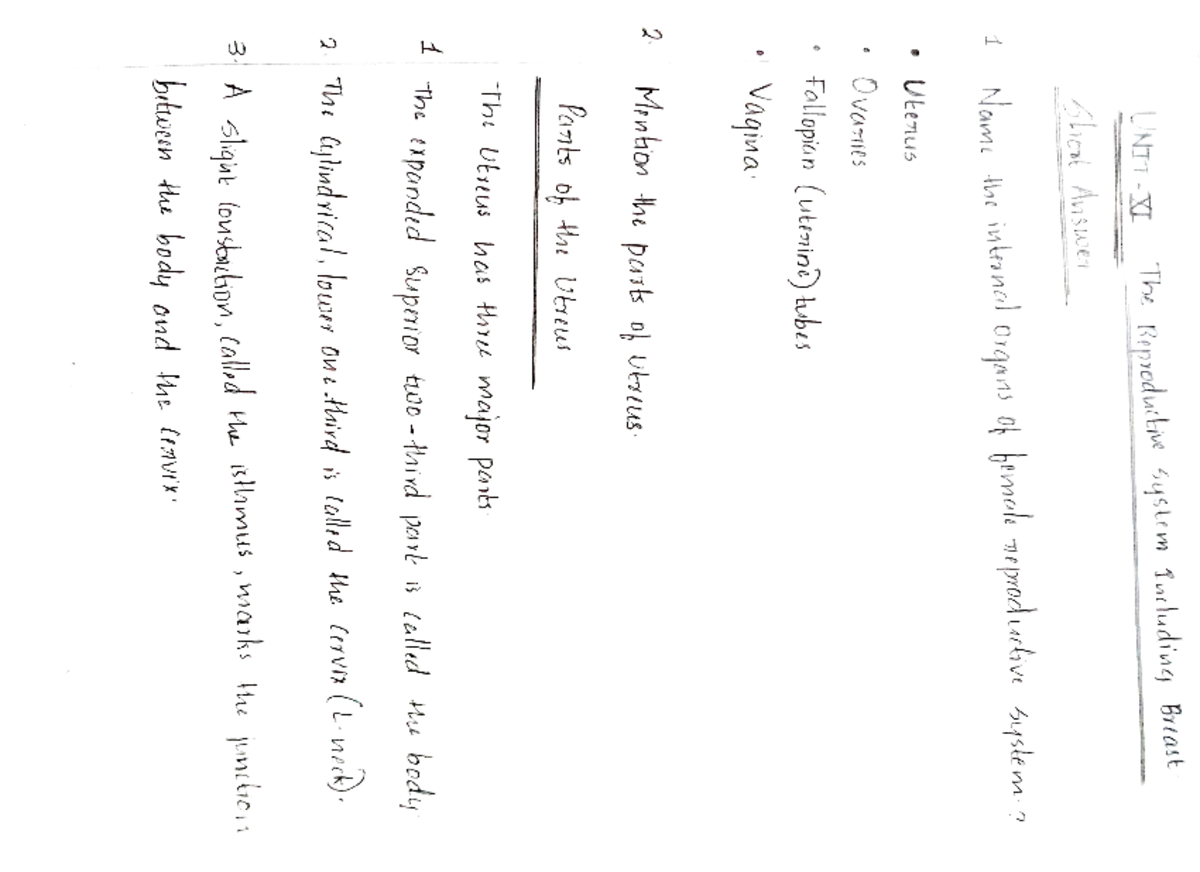 UNIT-XI The Reproductive System Including Breast
Short Answer
1 Name the internal organs of female reproductive system?
• Uterus
• Ovaries
• Fallopian (uterine) tubes
• Vagina.
2. Mention the parts of Utreus.
Parts of the Utreus
The Utreus has three major parts.
1 The expanded Superior two-third part is called the body
2. The Cylindrical, lower one-third is called the cervix (L. neck).
3. A slight constriction, called the isthmus, marks the junction
between the body and the cervix.